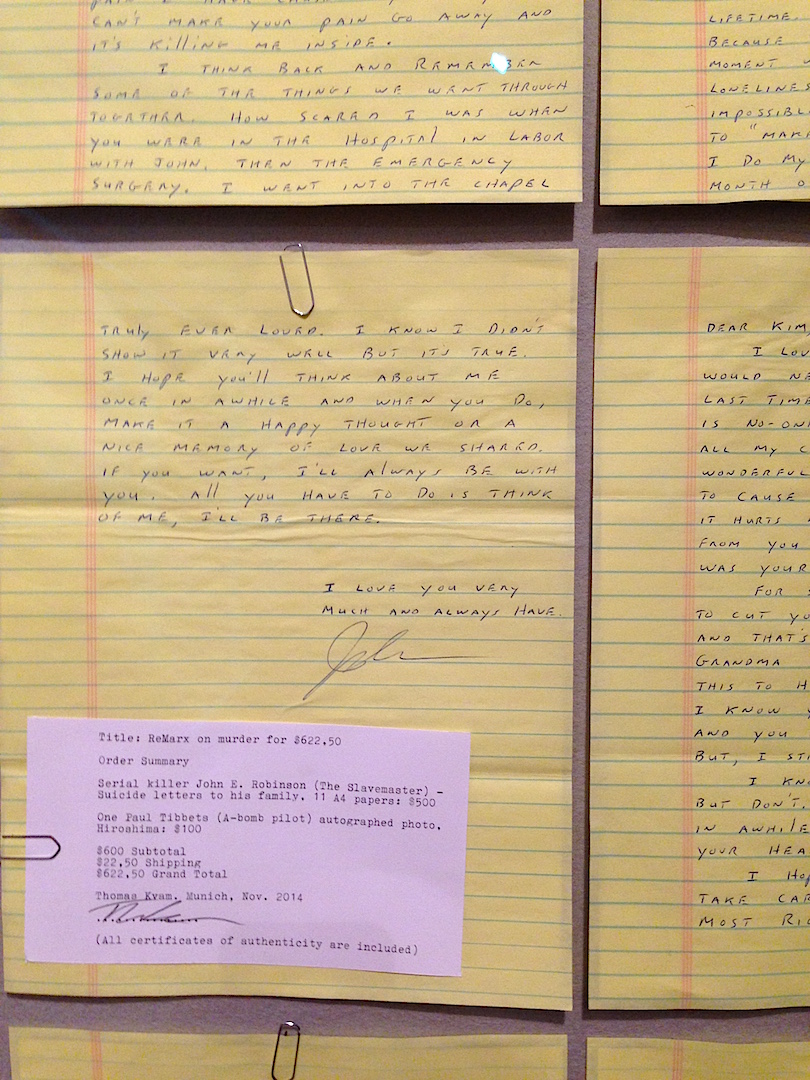 CAN'T MAKE YOUR PAIN GO AWAY AND
IT'S KILLING ME INSIDE.
I THINK BACK AND REMEMBER
SOME OF THE THINGS WE WENT THROUGH
TOGETHER. HOW SCARED I WAS WHEN
YOU WERE IN THE HOSPITAL IN LABOR
WITH JOHN. THEN THE EMERGENCY
SURGERY. I WENT INTO THE CHAPEL
LIFETIME.
BECAUSE
MOMENT
LONELINES
IMPOSSIBL
TO "MAK
I DO MY
MONTH O
TRULY EVER LOVED. I KNOW I DIDN'T
SHOW IT VERY WELL BUT ITS TRUE.
I HOPE YOU'LL THINK ABOUT ME
ONCE IN AWHILE AND WHEN YOU DO,
MAKE IT A HAPPY THOUGHT OR A
NICE MEMORY OF LOVE WE SHARED.
IF YOU WANT, I'LL ALWAYS BE WITH
YOU. ALL YOU HAVE TO DO IS THINK
OF ME, I'LL BE THERE.
I LOVE YOU VERY
MUCH AND ALWAYS HAVE.
John
Title: ReMarx on murder for $622,50
Order Summary
Serial killer John E. Robinson (The Slavemaster) -
Suicide letters to his family. 11 A4 papers: $500
One Paul Tibbets (A-bomb pilot) autographed photo,
Hiroshima: $100
$600 Subtotal
$22,50 Shipping
$622,50 Grand Total
Thomas Kvam. Munich, Nov. 2014
(All certificates of authenticity are included)
DEAR KIM,
I LOV
WOULD NE
LAST TIME
IS NO-ON
ALL MY C
WONDERFUL
TO CAUSE
IT HURTS
FROM YOU
WAS YOUR
FOR S
TO CUT YO
AND THAT'S
GRANDMA
THIS TO H
I KNOW Y
AND YOU
BUT, I STI
I KNO
BUT DON'T.
IN AWHILE
YOUR HEA
I HOP
TAKE CAR
MOST RIC